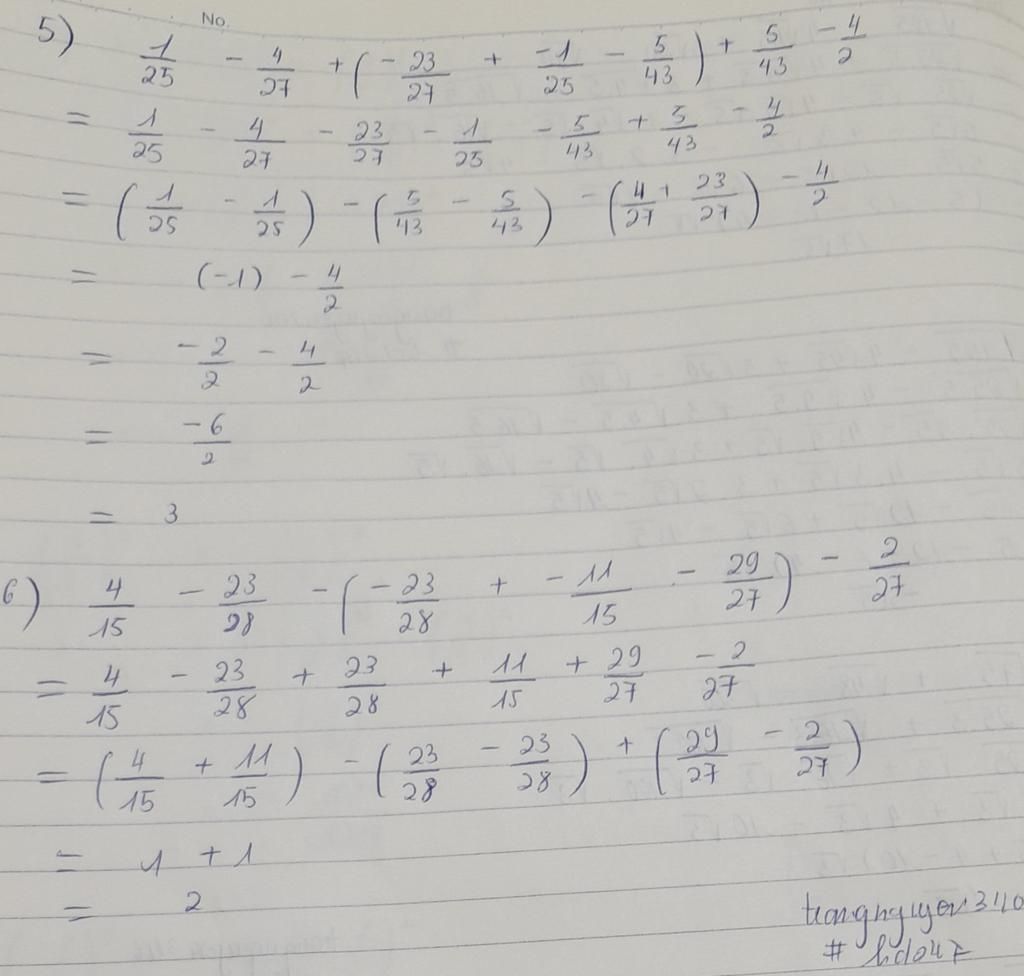 No.
5) 1/25 - 4/27 + (-23/27 + -1/25 - 5/43) + 5/43 - 4/2
= 1/25 - 4/27 - 23/27 - 1/25 - 5/43 + 5/43 - 4/2
= (1/25 - 1/25) - (5/43 - 5/43) - (4/27 + 23/27) - 4/2
= (-1) - 4/2
= -2/2 - 4/2
= -6/2
= 3
6) 4/15 - 23/28 - (-23/28 + -11/15 - 29/27) - 2/27
= 4/15 - 23/28 + 23/28 + 11/15 + 29/27 - 2/27
= (4/15 + 11/15) - (23/28 - 23/28) + (29/27 - 2/27)
= 1 + 1
= 2
trangnguyen340
# hdo47